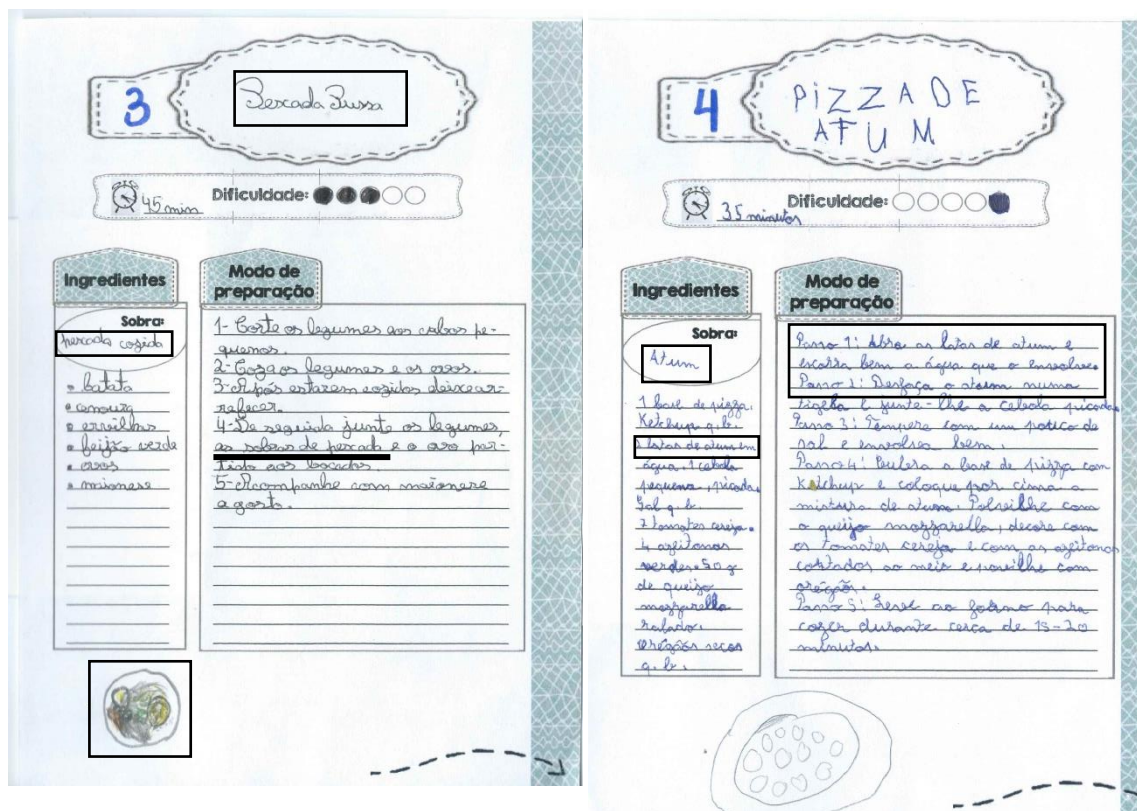 3
Pescada Russa
45 min
Dificuldade:
Ingredientes
Modo de
preparação
Sobra:
pescada cozida
batata
cenoura
ervilhas
feijão verde
ovos
maionese
1- Corte os legumes aos cubos pe-
quenos.
2- Coza os legumes e os ovos.
3- Após estarem cozidos deixe ar-
refecer.
4- De seguida junte os legumes,
as sobras de pescada e o ovo par-
tido aos bocados.
5- Acompanhe com maionese
a gosto.
4
PIZZA DE
ATUM
35 minutos
Dificuldade:
Ingredientes
Modo de
preparação
Sobra:
Atum
1 base de pizza.
Ketchup q.b.
2 latas de atum em
água. 1 cebola
pequena, picada.
Sal q.b.
7 tomates cereja.
4 azeitonas
verdes. 50 g
de queijo
mozzarella
ralado.
Oregãos secos
q.b.
Passo 1: Abra as latas de atum e
escorra bem a água que o envolve.
Passo 2: Desfaça o atum numa
tigela e junte-lhe a cebola picada.
Passo 3: Tempere com um potico de
sal e envolva bem.
Passo 4: a base de pizza com
Ketchup e coloque por cima a
mistura de atum. Polvilhe com
o queijo mozzarella, decore com
os tomates cereja e com as azeitonas
cortados ao meio e polvilhe com
oregãos.
Passo 5: Leve ao forno para
cozer durante cerca de 15-20
minutos.